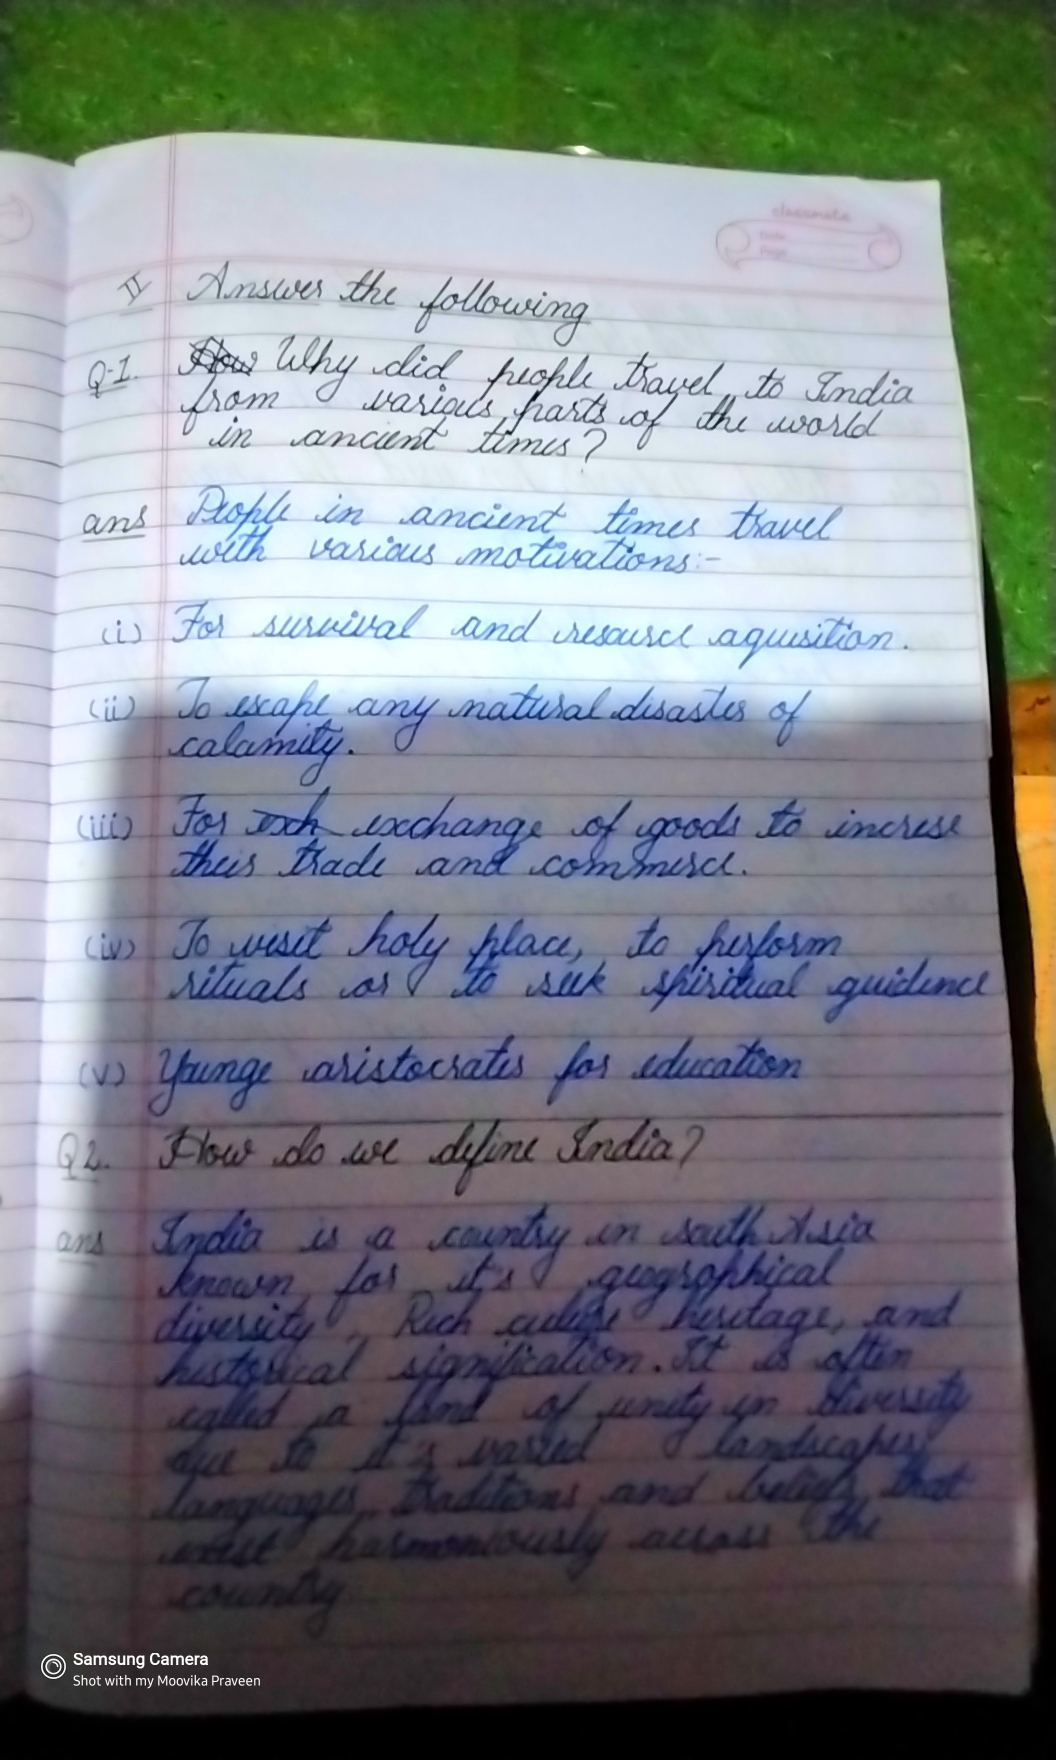 classmate
Date
Page
II Answer the following
Q-1. How Why did people travel to India
from various parts of the world
in ancient times?
ans People in ancient times travel
with various motivations:-
(i) For survival and resource aqusition.
(ii) To escape any natural disaster of
calamity.
(iii) For exch exchange of goods to increse
their trade and commerce.
(iv) To visit holy place, to perform
rituals or to seek spiritual guidence
(v) Younge aristocrates for education
Q2. How do we define India?
ans India is a country in south Asia
known for it's geographical
diversity, Rich culture heritage, and
historical signification. It is often
called a land of unity in diversity
due to it's varied landscapes,
languages, traditions and beliefs that
exist harmoniously across the
country
Samsung Camera
Shot with my Moovika Praveen